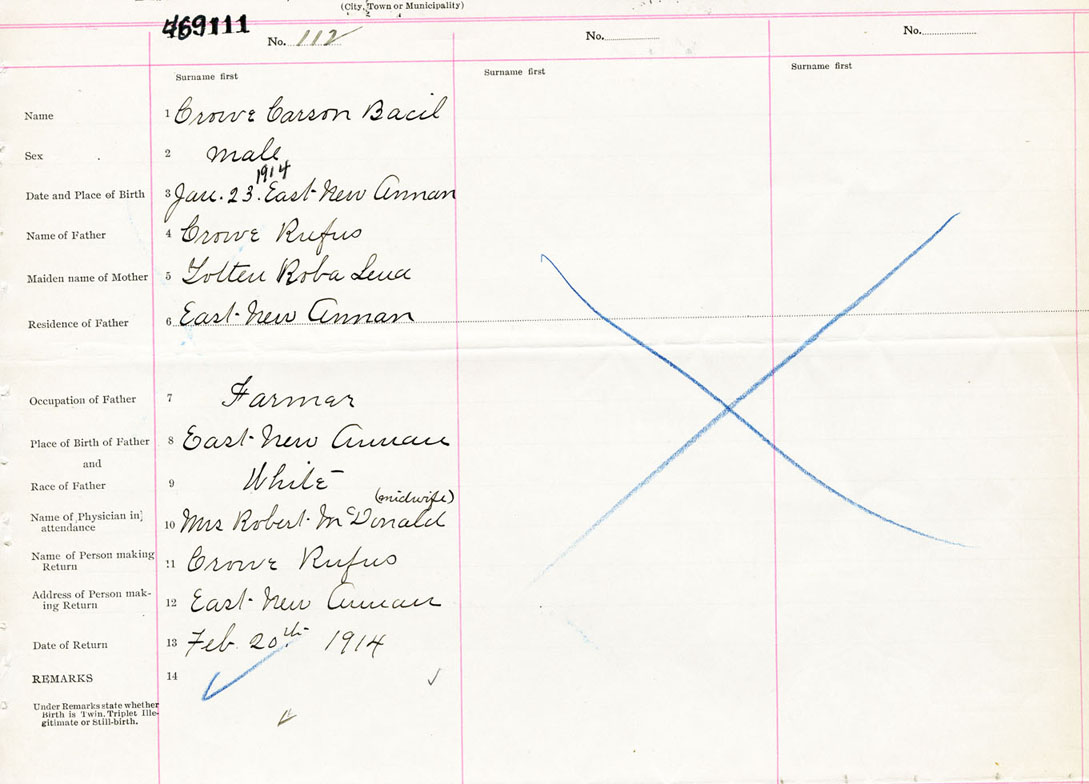 (City, Town or Municipality)
469111
No. 112
No.
No.
Surname first
Surname first
Surname first
Name 1 Crowe Carson Bacil
Sex 2 male
1914
Date and Place of Birth 3 Jan. 23. East New Annan
Name of Father 4 Crowe Rufus
Maiden name of Mother 5 Totten Roba Lena
Residence of Father 6 East New Annan
Occupation of Father 7 Farmer
Place of Birth of Father 8 East New Annan
and
Race of Father 9 White
(midwife)
Name of Physician in
attendance 10 Mrs Robert McDonald
Name of Person making
Return 11 Crowe Rufus
Address of Person mak-
ing Return 12 East New Annan
Date of Return 13 Feb. 20th 1914
REMARKS 14
Under Remarks state whether
Birth is Twin, Triplet Ille-
gitimate or Still-birth.